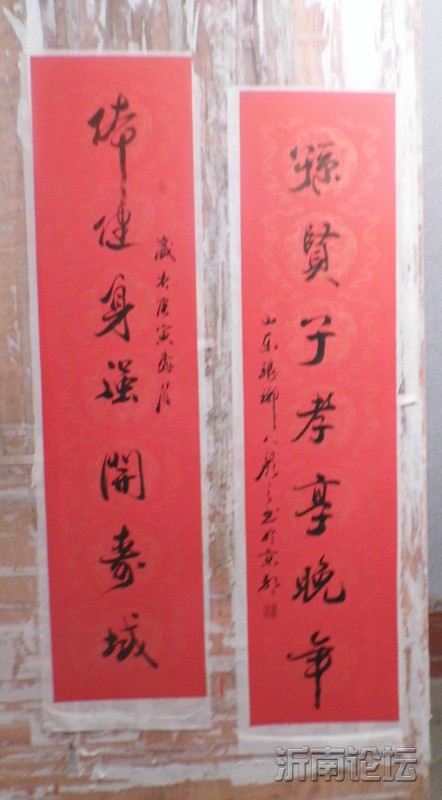 体健身强開寿域
歲在庚寅
孫賢子孝享晚年
山东琅琊
书於京都
沂南论坛